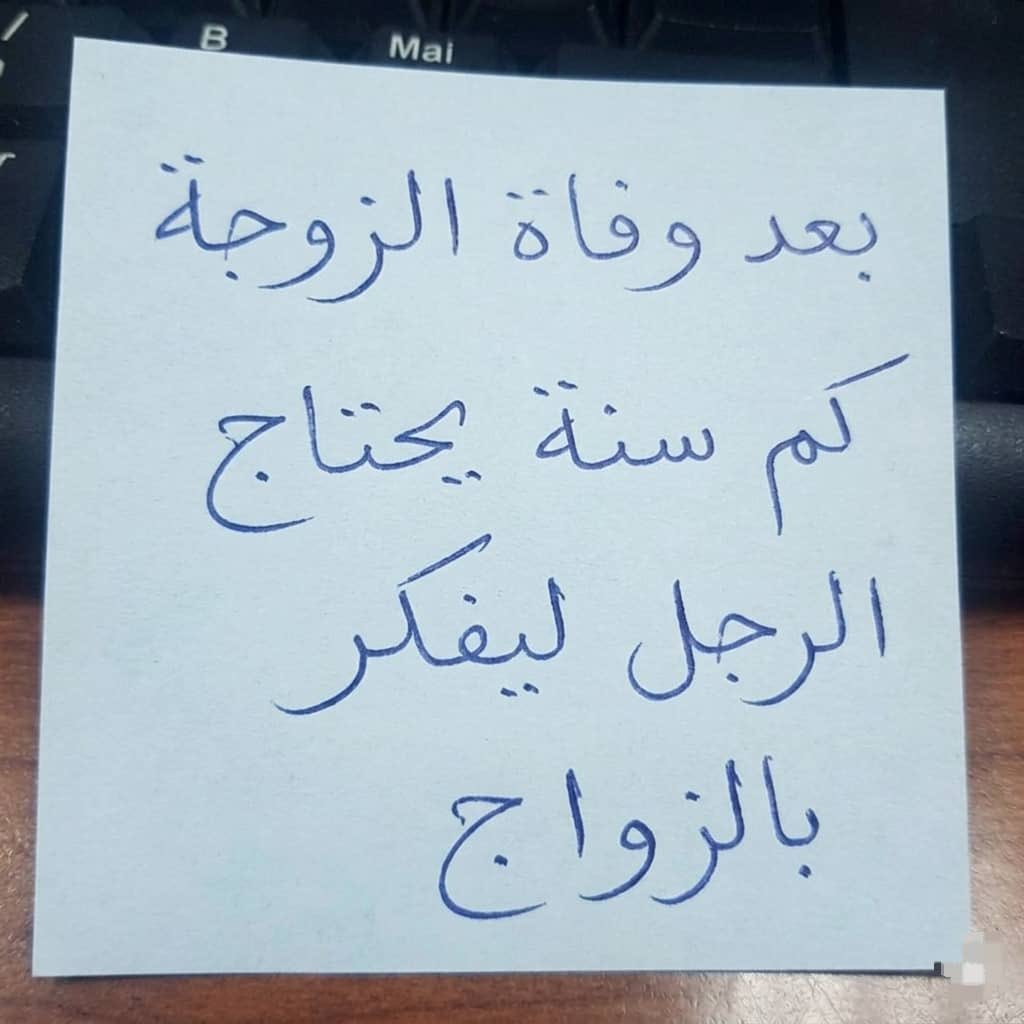 B
Mai
بعد وفاة الزوجة
كم سنة يحتاج
الرجل ليفكر
بالزواج